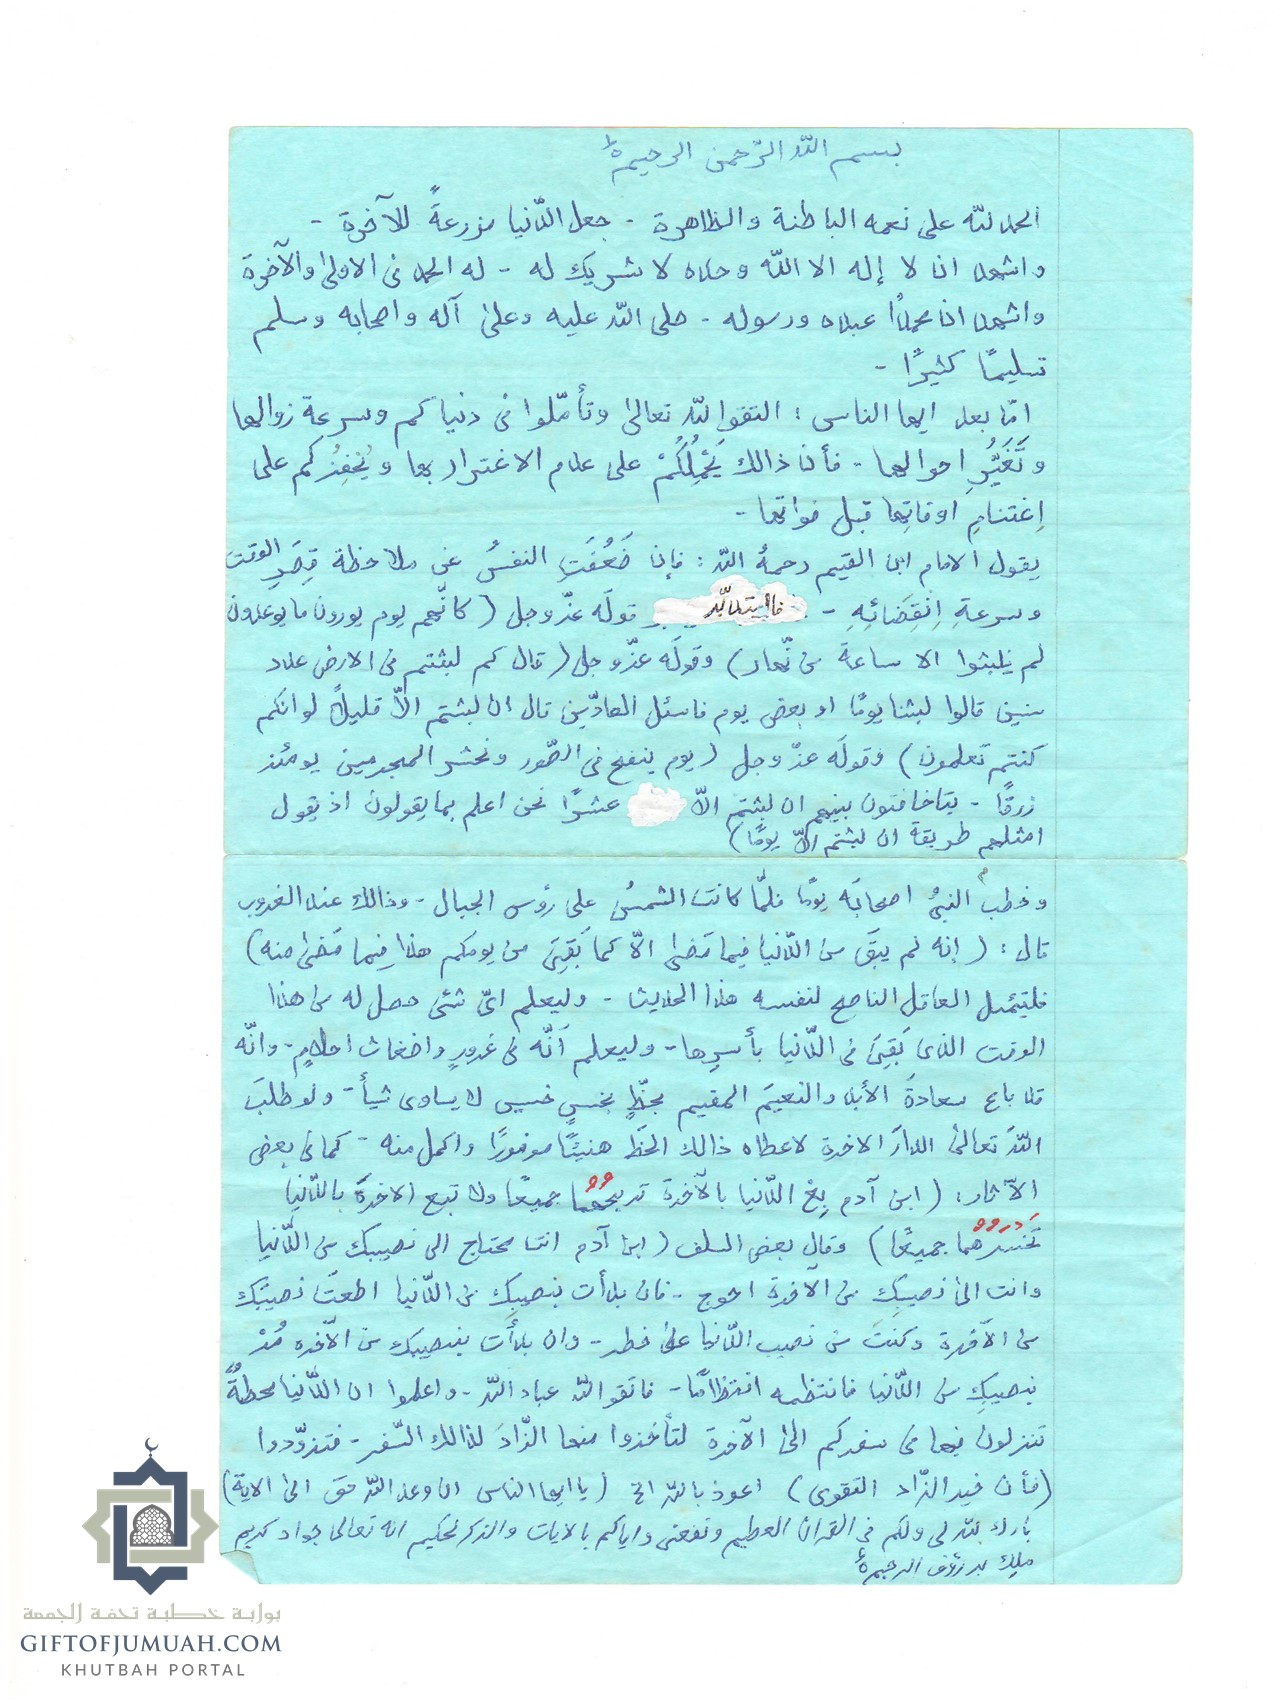 بسم اللّٰه الرّحمن الرحيم ٥
الحمد للّٰه على نعمه الباطنة والظاهرة - جعل الدّنيا مزرعةً للآخرة -
واشهد ان لا إله الا اللّٰه وحده لا شريك له - له الحمد فى الاولىٰ والآخرة
واشهد ان محمدًا عبده ورسوله - صلى اللّٰه عليه وعلىٰ آله واصحابه وسلم
تسليمًا كثيرًا -
امّا بعد ايها الناس : اتقوا للّٰه تعالىٰ وتأمّلوا فى دنياكم وسرعة زوالها
وتَغَيُّرِ احوالها - فأن ذالك يَحْمِلُكُمْ على عدم الاغترار بها ويُحفِزُكم على
إغتنامِ اوقاتِها قبل فواتها -
يقول الامام ابن القيم رحمهُ اللّٰه : فإن ضَعُفَتِ النفسُ عن ملاحظة قِصَرِ الوقت
وسرعةِ اِنقِضَائِهِ - فاليتدبّر قولَه عزّ وجل ( كانّهم يوم يورون ما يوعدون
لم يلبثوا الا ساعة من نّهار ) وقولَه عزّ وجل ( قال كم لبثتم فى الارض عدد
سنين قالوا لبثنا يومًا او بعض يوم فاسئل العادّين قال ان لبثتم الاّ قليلاً لو انكم
كنتم تعلمون ) وقولَه عزّ وجل ( يوم ينفخ فى الصّور ونحشر المجرمين يومئذ
زرقًا - يتاخافتون بينهم ان لبثتم الاّ عشرًا نحن اعلم بما يقولون اذ يقول
امثلهم طريقة ان لبثتم الاّ يومًا )
وخطب النبىُّ اصحابَه يومًا فلمّا كانت الشمسُ على رؤس الجبال - وذالك عند الغروب
قال : ( إنه لم يبقَ من الدّنيا فيما مَضىٰ الاّ كما بَقِىَ من يومكم هذا فِيما مَضىٰ منه )
فليتئمل العاقل الناصح لنفسه هذا الحديث - وليعلم اىّ شئ حصل له من هذا
الوقت الذى بَقِىَ فى الدّنيا بأسرِها - وليعلم اَنّه فى غرورٍ واضغاث احلامٍ - وانّه
قد باع سعادةَ الأبد والنعيمَ المقيم بحظٍّ بخسٍ خسيس لا يساوى شيأ - ولو طلبَ
اللّٰهَ تعالىٰ الدارَ الاخرة لاعطاه ذالك الحَظَّ هنيئًا موفورًا واكمل منه - كما فى بعض
الآثار : ( ابن آدم بِعْ الدّنيا بالآخرة تربحهُما جميعًا ولا تبع الاخرةَ بالدّنيا
تَخسَرهُما جميعًا ) وقال بعض السلف ( ابن آدم انت محتاج الى نصيبك من الدّنيا
وانت الىٰ نصيبِك من الآخرة احوج - فان بدأت بنصيبك من الدّنيا اطعتَ نصيبَك
من الآخرة وكنتَ من نصيب الدّنيا علىٰ خطر - وان بدأت بنصيبك من الآخره مُرّ
بنصيبِك من الدّنيا فانتظمه انتظامًا - فاتقو اللّٰه عباد اللّٰه - واعلموا ان الدّنيا محطةٌ
تنزلون فيها فى سفركم الىٰ الآخرة لتأخذوا منها الزّادَ لذالك السّفر - فتزوّدوا
( فأن خير الزّاد التقوى ) اعوذ باللّٰه الخ ( يا ايها الناس ان وعد اللّٰه حق الىٰ الاية )
بارك للّٰه لى ولكم فى القران العظيم ونفعنى واياكم بالايات والذكر لحكيم انه تعالىٰ جواد كريم
ملك بر رؤف الرحيم ٥
بوابة خطبة تحفة الجمعة
GIFTOFJUMUAH.COM
KHUTBAH PORTAL